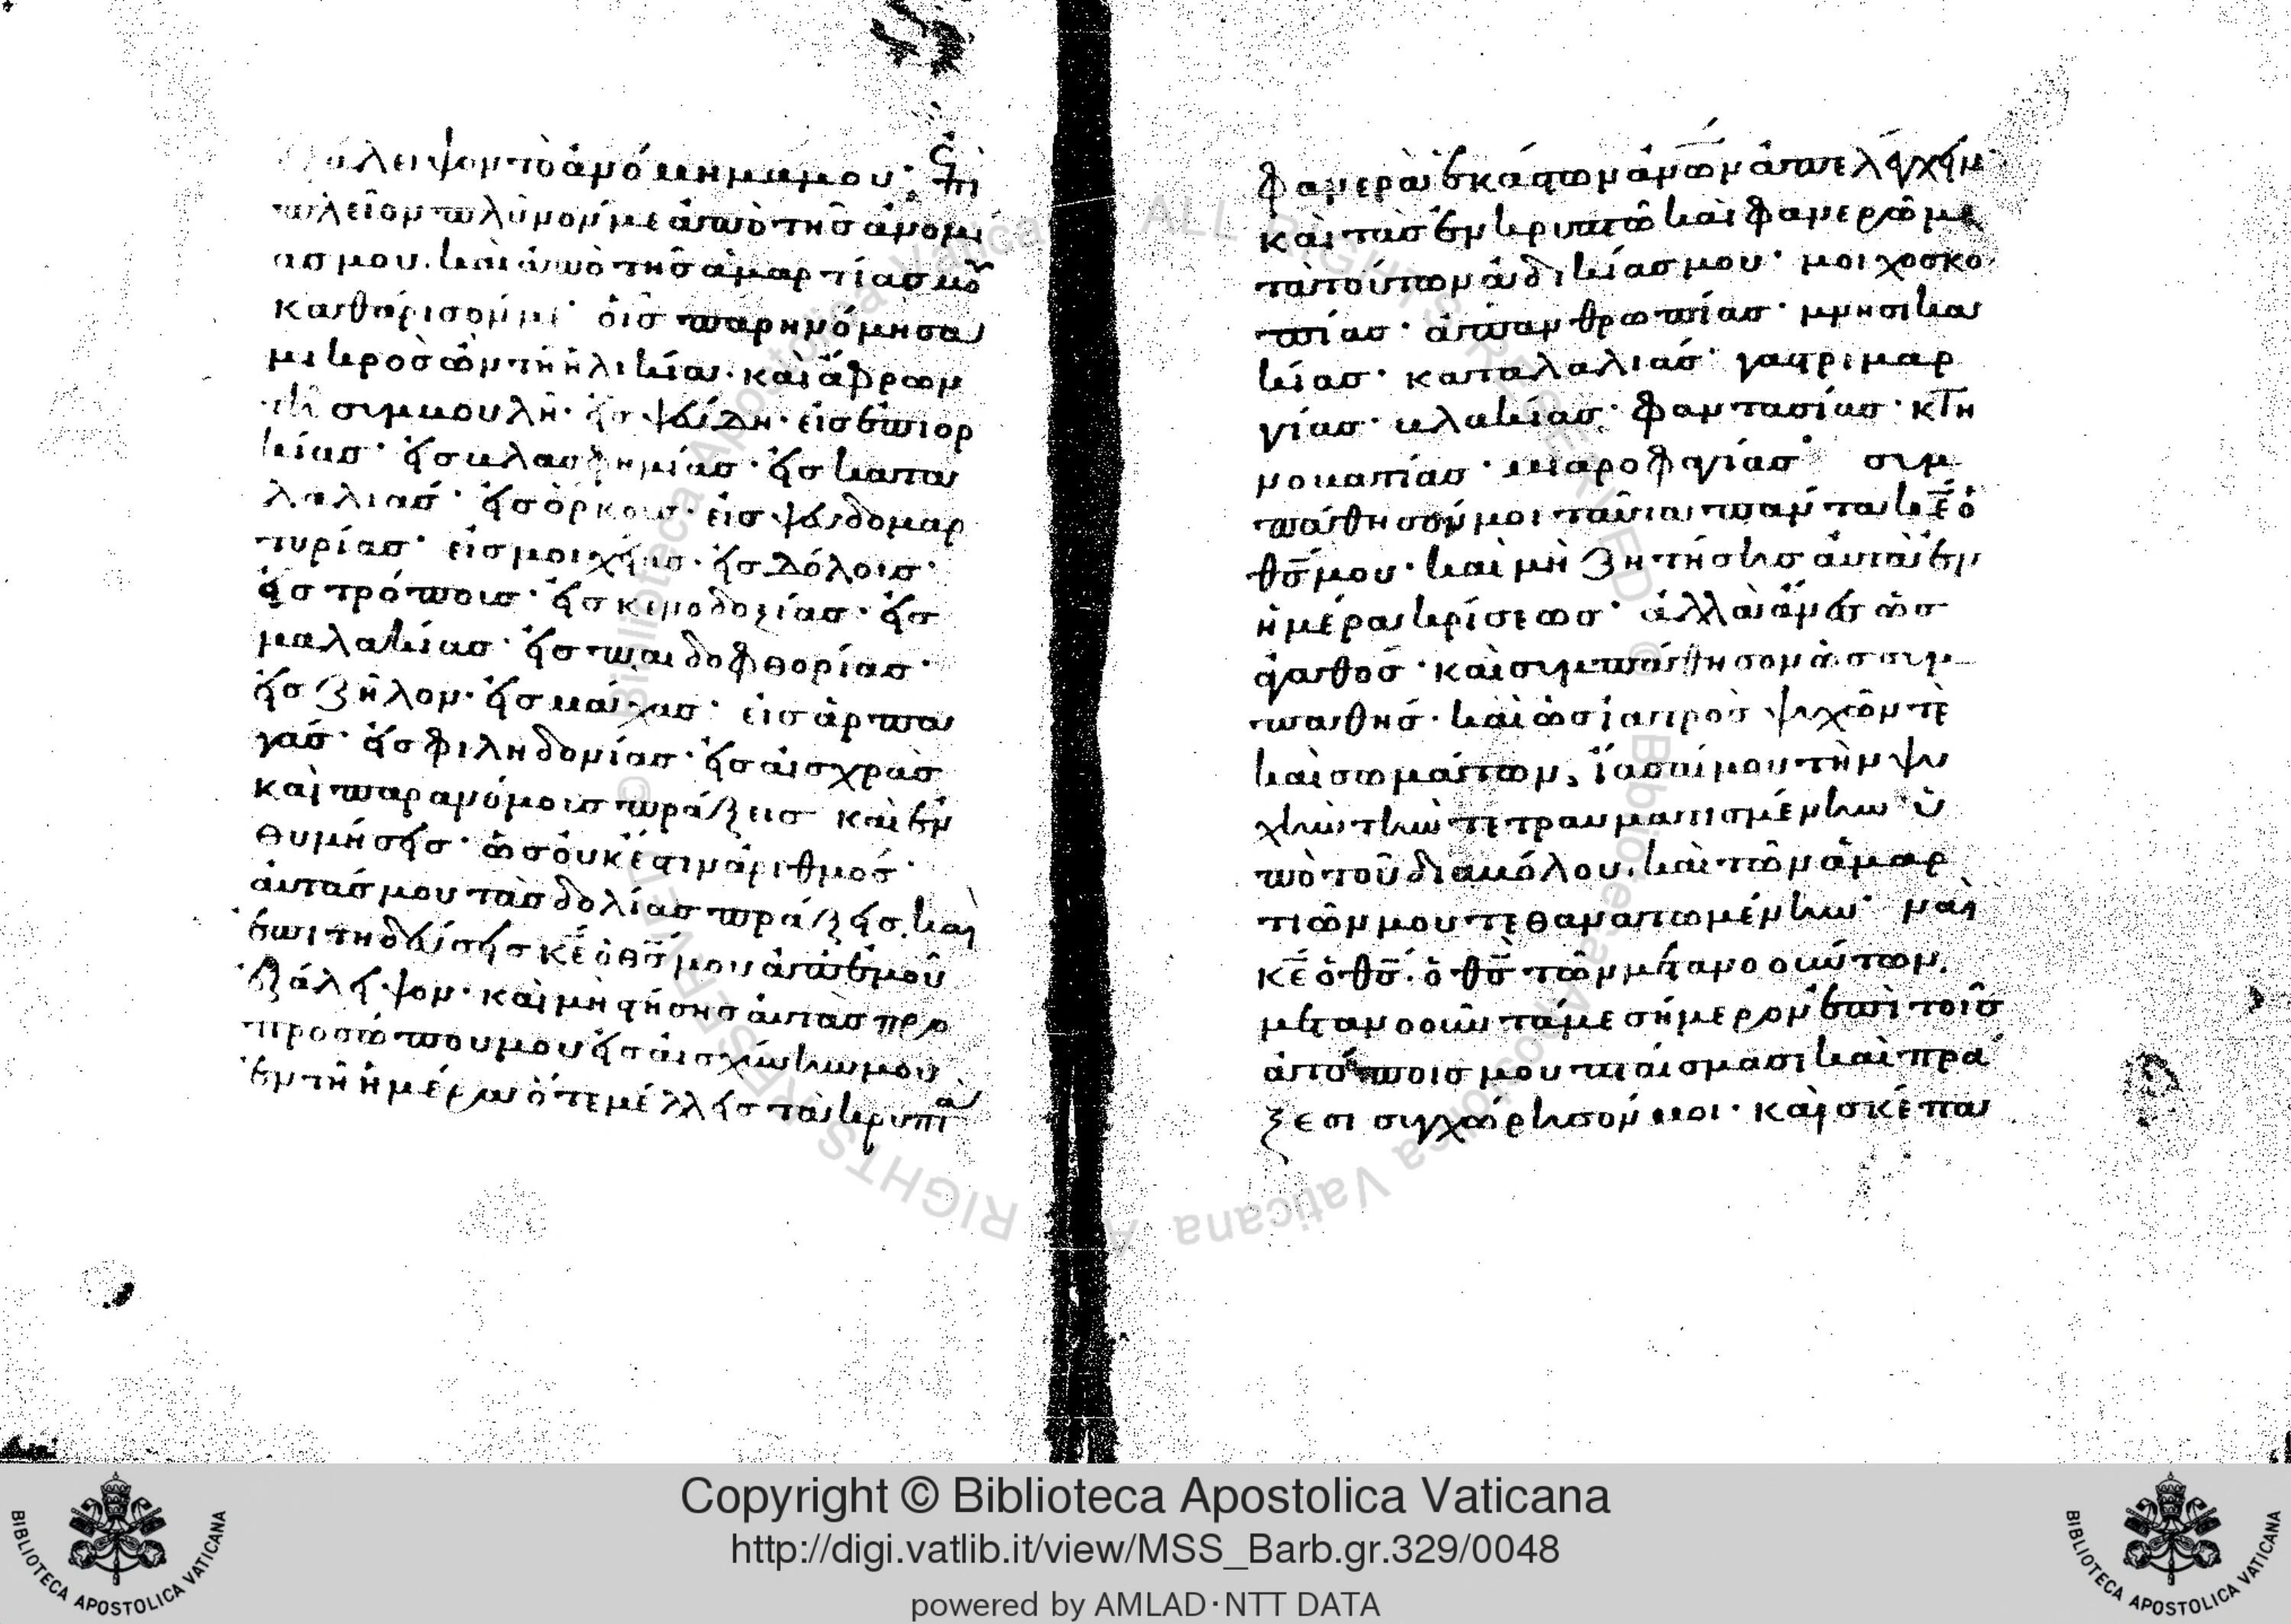 ἐξάλειψον τὸ ἀνόμημα μου· ἐπὶ
πλεῖον πλῦνον με ἀπὸ τῆσ ἀνομί
ασ μου. καὶ ἀπὸ τῆσ ἁμαρτίασ μου
καθάρισόν με· οἷσ παρηνόμησα
μικρὸσ ὢν τῆ ἡλικία. καὶ ἄφρων
τῆ συμβουλῆ· εἰσ ψεύδη· εἰσ ἐπιορ
κίασ· εἰσ βλασφημίασ· εἰσ κατα
λαλιάσ· εἰσ ὅρκουσ· εἰσ ψευδομαρ
τυρίασ· εἰσ μοιχείασ· εἰσ δόλοισ·
εἰσ τρόποισ· εἰσ κενοδοξίασ· εἰσ
μαλακίασ· εἰσ παιδοφθορίασ·
εἰσ ζῆλον· εἰσ μάχασ· εἰσ ἁρπα
γάσ· εἰσ φιληδονίασ· εἰσ αἰσχρὰσ
καὶ παρανόμοισ πράξεισ καὶ ἐν
θυμήσεισ· ὧσ οὐκ ἔστιν ἀριθμόσ·
αὐτάσ μου τὰσ δολίασ πράξεισ. καὶ
ἐπιτηδεύσεισ κε ὁ θσ μου ἀπ' ἐμοῦ
ἐξάλειψον· καὶ μὴ στήσησ αὐτὰσ πρὸ
προσώπου μου εἰσ αἰσχύνην μου
ἐν τῆ ἡμέρα ὅτε μέλλεισ τὰ κρυπτὰ
φανερὰ ἑκάστων ἀνων ἀπελέγχειν
καὶ τὰσ ἐν κρυπτῶ καὶ φανερῶ με
τὰ τούτων ἀδικίασ μου· μοιχοσκο
πίασ· ἀπανθρωπίασ· μνησικα
κίασ· καταλαλιάσ· γαστριμαρ
γίασ· βλακίασ· φαντασίασ· κτη
νοβατίασ· μιαροφαγίασ· συμ
πάθησόν μοι ταῦτα πάντα κε ὁ
θσ μου· καὶ μὴ ζητήσησ αὐτὰ ἐν
ἡμέρα κρίσεωσ· ἀλλὰ ἄνεσ ὡσ
ἀγαθόσ· καὶ συμπάθησον ὡσ συμ
παθήσ· καὶ ὡσ ἰατρὸσ ψυχῶν τε
καὶ σωμάτων, ἴασαί μου τὴν ψυ
χὴν τὴν τετραυματισμένην ὑ
πὸ τοῦ διαβόλου. καὶ τῶν ἁμαρ
τιῶν μου τεθανατωμένην· ναὶ
κε ὁ θσ. ὁ θσ τῶν μετανοούντων.
μετανοοῦντά με σήμερον ἐπὶ τοῖσ
ἀτόποισ μου πταίσμασι καὶ πρά
ξεσι συγχώρησόν μοι· καὶ σκέπα
Copyright © Biblioteca Apostolica Vaticana
http://digi.vatlib.it/view/MSS_Barb.gr.329/0048
powered by AMLAD·NTT DATA
BIBLIOTECA APOSTOLICA VATICANA
BIBLIOTECA APOSTOLICA VATICANA